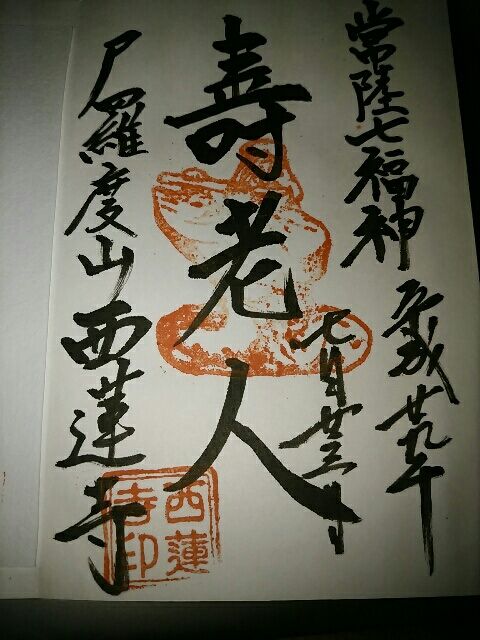 常陸七福神
平成廿九年
七月廿三日
壽老人
尸羅度山西蓮寺
西蓮
寺印